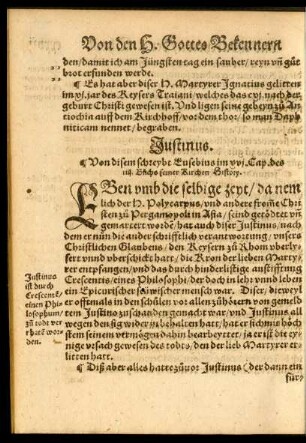 Von den H. Gottes Bekennern
den/ damit ich am Jüngsten tag ein sauber/ reyn vñ gůt
brot erfunden werde.
¶ Es hat aber diser H. Martyrer Ignatius gelitten
im xj. jar des Keysers Traiani/ welches das cxj. nach der
geburt Christi gewesen ist. Vnd ligen seine gebeyn zů An
tiochia auff dem Kirchhoff/ vor dem thor/ so man Daph
niticam nennet/ begraben.
Justinus.
¶ Von disem schreybt Eusebius im xvj. Cap. des
iiij. Bůchs seiner Kirchen History.
EBen vmb die selbige zeyt/ da nem
lich der H. Polycarpus/ vnd andere from̃e Chri
sten zů Pergamopoli in Asia/ seind getödtet vñ
gemartert worde/ hat auch diser Justinus/ nach
dem er nůn die ander schrifftlich verantwortung/ vnsers
Christlichen Glaubens/ den Keysern zů Rhom vberly
fert vnnd vberschickt hatt/ die Kron der lieben Marty
rer entpfangen/ vnd das durch hinderlistige anstifftung
Crescentis/ eines Philosophi/ der doch in lehr vnnd leben
ein Epicurischer mensch war. Diser/ dieweyl
er offtmals in den schůlen vor allen zůhörern von gemel
tem Justino zů schanden gemacht war/ vnd Justinus all
wegen den sig wider in behalten hatt/ hat er sich mis höch
stem seinem vermögen dahin bearbeyttet/ ja er ist die ey
nige vrsach gewesen des todts/ den der lieb Martyrer er
litten hatt.
¶ Diß aber alles hatte zůuor Justinus (der dann ein
für
Justinus
ist durch
Crescentẽ/
einen Phi
losophum/
zů tode ver
rhatẽ wor
den.